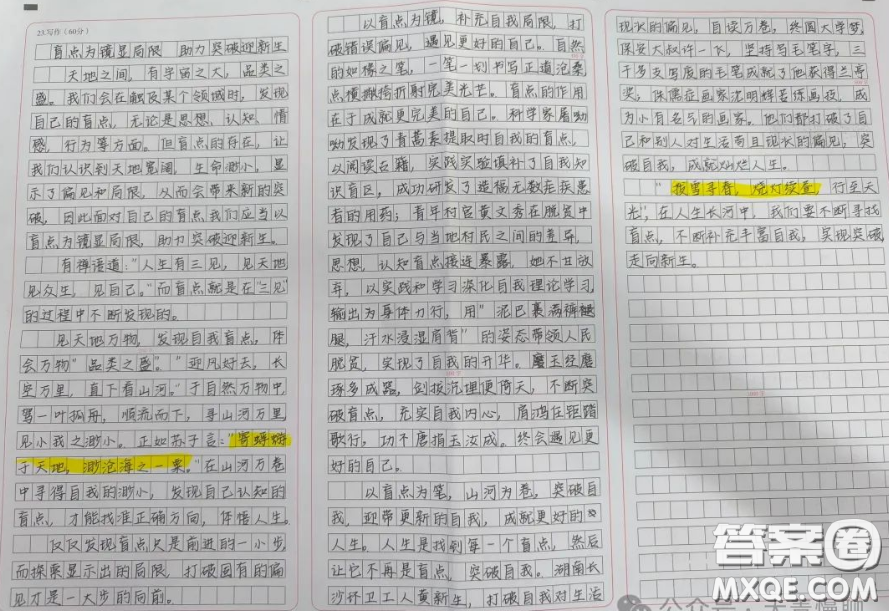 23.写作(60分)
盲点为镜显局限 助力突破迎新生
天地之间，有宇宙之大，品类之
盛。我们会在触及某个领域时，发现
自己的盲点，无论是思想、认知、情
感、行为等方面。但盲点的存在，让
我们认识到天地宽阔，生命渺小，显
示了偏见和局限，从而会带来新的突
破，因此面对自己的盲点我们应当以
盲点为镜显局限，助力突破迎新生。
有禅语道："人生有三见，见天地
见众生，见自己。"而盲点就是在"三见"
的过程中不断发现的。
见天地万物，发现自我盲点，体
会万物"品类之盛"。"迎风好去，长
空万里，直下看山河。"于自然万物中，
驾一叶孤舟，顺流而下，寻山河万里
见小我之渺小。正如苏子言："寄蜉蝣
于天地，渺沧海之一粟。"在山河万卷
中寻得自我的渺小，发现自己认知的
盲点，才能找准正确方向，体悟人生。
仅仅发现盲点只是前进的一小步，
而探索显示出的局限，打破固有的偏
见才是一大步的向前。
以盲点为镜，补充自我局限，打
破错误偏见，遇见更好的自己。自然
的如椽之笔，一笔一划书写正道沧桑
点横撇捺折射完美光芒。盲点的作用
在于成就更完美的自己。科学家屠呦
呦发现了青蒿素提取时自我的盲点，
以阅读古籍，实践实验填补了自我知
识盲区，成功研发了造福无数疟疾患
者的用药；青年村官黄文秀在脱贫中
发现了自己与当地村民之间的差异，
思想，认知盲点接连暴露，她不甘放
弃，以实践和学习深化自我理论学习，
输出为身体力行，用"泥巴裹满裤腿
腿，汗水浸湿肩背"的姿态带领人民
脱贫，实现了自我的升华。璞玉经磨
琢多成器，剑拔沉埋便倚天，不断突
破盲点，充实自我内心，肩鸿任钜踏
歌行，功不唐捐玉汝成。终会遇见更
好的自己。
以盲点为笔，山河为卷，突破自
我，迎带更新的自我，成就更好的
人生。人生是找到每一个盲点，然后
让它不再是盲点，突破自我。湖南长
沙环卫工人黄新生，打破自我对生活
现状的偏见，自读万卷，终圆大学梦，
保安大叔许一飞，坚持写毛笔字，三
千多支写废的毛笔成就了他获得兰亭
奖；保儒症画家沈明辉苦练画技，成
为小有名气的画家。他们都打破了自
己和别人对生活苟且现状的偏见，突
破自我，成就灿烂人生。
"拨雪寻春，烧灯续昼，行至天
光"，在人生长河中，我们要不断寻找
盲点，不断补充丰富自我，实现突破
走向新生。
答案圈
MXQE.COM
公众号